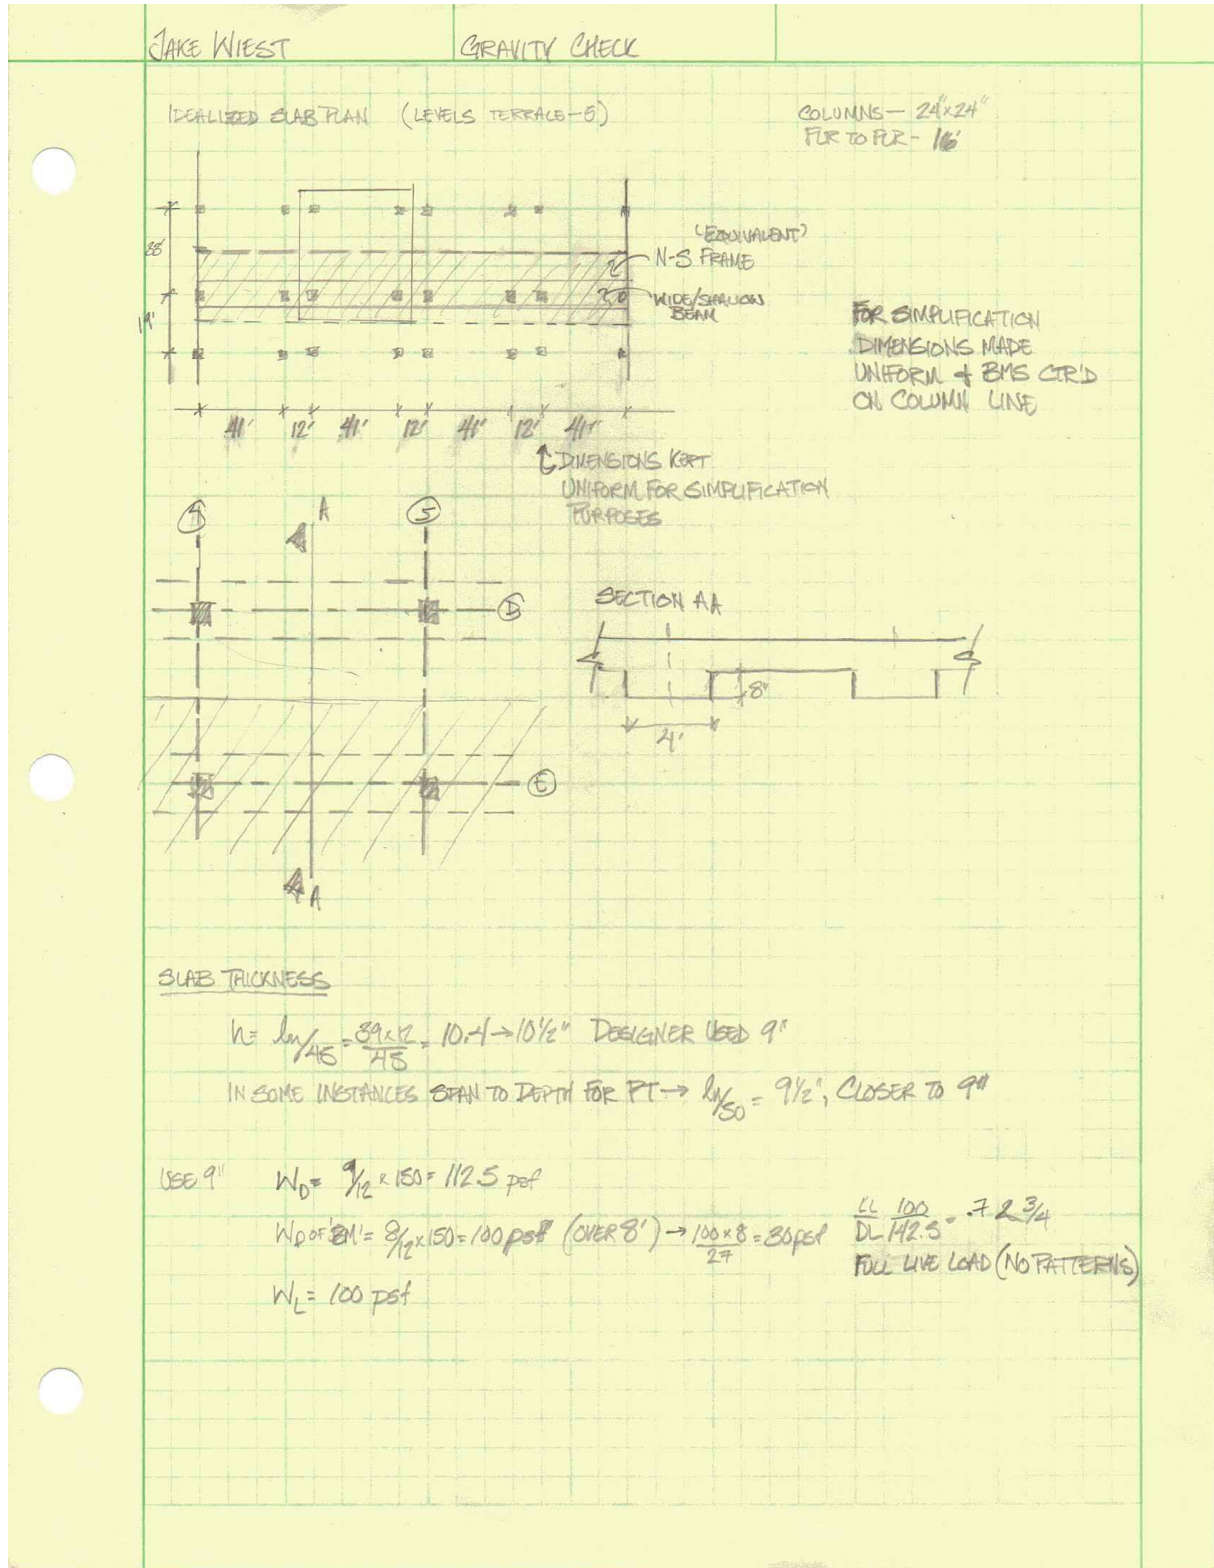 JAKE WIEST GRAVITY CHECK
IDEALIZED SLAB PLAN (LEVELS TERRACE-5)
COLUMNS - 24"x24"
FLR TO FLR - 16'
28'
19'
'EQUIVALENT'
N-S FRAME
WIDE/SHALLOW
BEAM
FOR SIMPLIFICATION
DIMENSIONS MADE
UNIFORM & BMS CTR'D
ON COLUMN LINE
41' 12' 41' 12' 41' 12' 41'
DIMENSIONS KEPT
UNIFORM FOR SIMPLIFICATION
PURPOSES
4 A 5
D
SECTION AA
8"
4'
E
A
SLAB THICKNESS
h = ln/45 = 39x12/45 = 10.4 → 10 1/2" DESIGNER USED 9"
IN SOME INSTANCES SPAN TO DEPTH FOR PT → ln/50 = 9 1/2", CLOSER TO 9"
USE 9" WD = 9/12 x 150 = 112.5 psf
WD OF 'BM' = 8/12 x 150 = 100 psf (OVER 8') → 100x8/27 = 30psf
LL/DL 100/142.5 = .7 < 3/4
FULL LIVE LOAD (NO PATTERNS)
WL = 100 psf